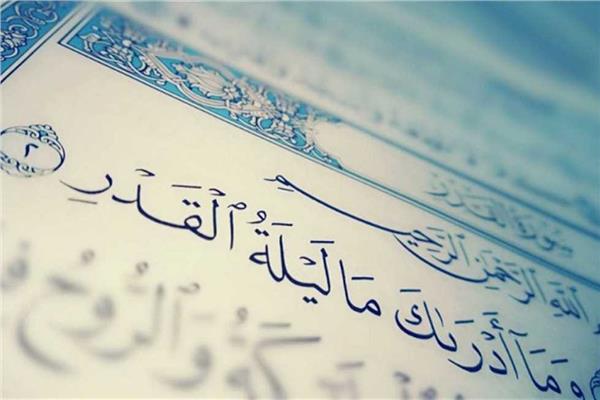 سورة القدر
الله الرحمن الرحيم
وَمَآ أَدْرَىٰكَ مَا لَيْلَةُ ٱلْقَدْرِ ٢
كَةُ وَٱلرُّوحُ